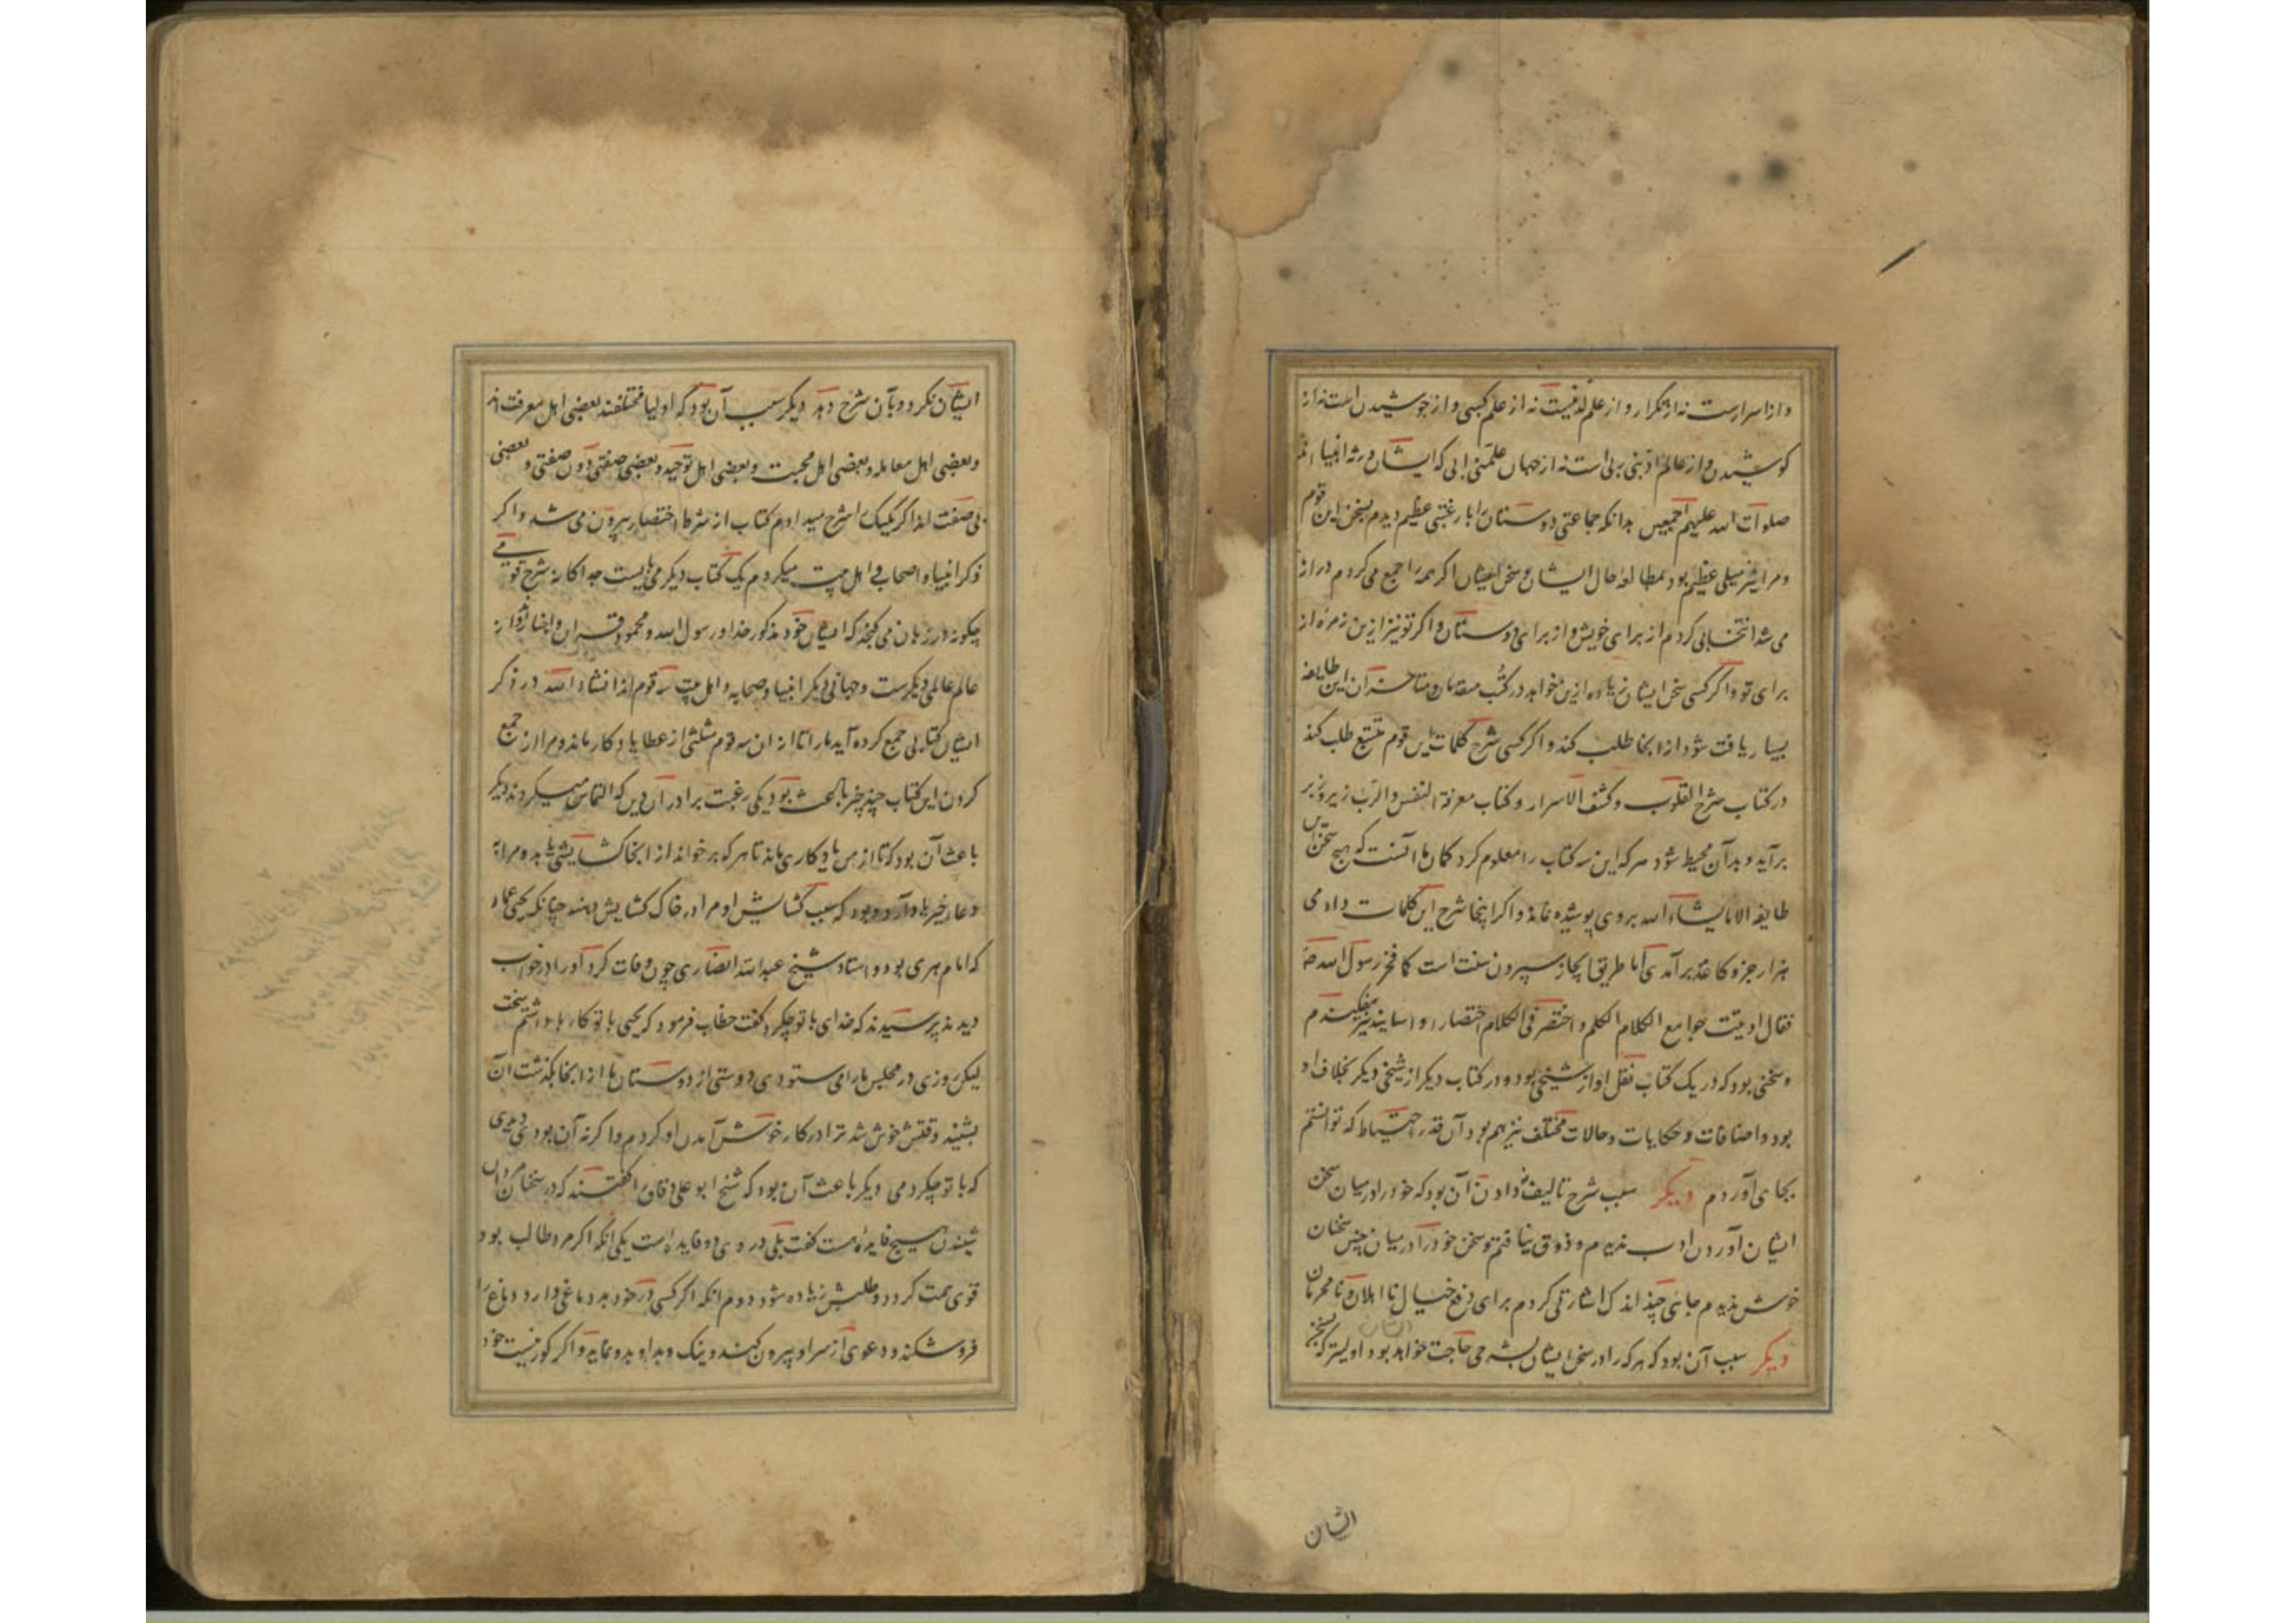 و از اسرارست نه از تکرار و از علم لدنیست نه از علم کسبی و از جوشیدن است نه از
کوشیدن و از عالم ادبنی ربی است نه از جهان علمنی ابی که ایشان ورثه انبیا اند
صلوات الله علیهم اجمعین بدانکه جماعتی دوستان را با رغبتی عظیم دیدم بسخن این قوم
و مرا نیز میلی عظیم بود بمطالعه حال ایشان و سخن ایشان اکر همه را جمع می کردم دراز
می شد انتخابی کردم از برای خویش و از برای دوستان و اکر تو نیز ازین زمره از
برای تو و اکر کسی سخن ایشان زیاده ازین خواهد در کتب متقدمان و متاخران این طایفه
بسیار یافت شود از انجا طلب کند و اکر کسی شرح کلمات این قوم مشبع طلب کند
در کتاب شرح القلوب و کشف الاسرار و کتاب معرفة النفس و الرب زیر و زبر
برآید و بدآن محیط شود هر که این سه کتاب را معلوم کرد کمان ما آنست که هیچ سخن این
طایفه الا ماشاء الله بر وی پوشیده نماند و اکر اینجا شرح این کلمات دادمی
هزار جزو کاغذ برآمدی اما طریق ایجاز سپردن سنت است کما فخر رسول الله صه
فقال اوتیت جوامع الکلام و اختصر فی الکلام اختصارا و اسانید نیز بیفکندم
و سخنی بود که در یک کتاب نقل او از شیخی بود و در کتاب دیکر از شیخی دیکر بخلاف او
بود و اضافات و حکایات و حالات مختلف نیز هم بود آن قدر احتیاط که توانستم
بجای آوردم دیکر سبب شرح تالیف نادادن آن بود که خود را در میان سخن
ایشان آوردن ادب ندیدم و ذوق نیافتم و سخن خود را در میان چنین سخنان
خوش ندیدم جائی چند اندک اشارتکی کردم برای دفع خیال نااهلان و نامحرمان
دیکر سبب آن بود که هر که را در سخن ایشان بشرحی حاجت خواهد بود اولیتر که بسخن
ایشان
ایشان نکرد و بآن شرح دهد دیکر سبب آن بود که اولیا مختلفند بعضی اهل معرفت اند
و بعضی اهل معامله و بعضی اهل محبت و بعضی اهل توحید و بعضی صفتی دون صفتی و بعضی
بی صفت لذا کر یکیک را شرح میدادم کتاب از شرط اختصار بیرون می شد و اکر
ذکر انبیا و اصحاب و اهل بیت میکردم یک کتاب دیکر می بایست جداکانه شرح قومی
چکونه در زبان می کنجد که ایشان خود مذکور خدا و رسول الله و محمود قرآن و اخبار و آن
عالم عالمی دیکرست و جهانی دیکر انبیا و صحابه و اهل بیت سه قوم اند انشاء الله در ذکر
ایشان کتابی جمع کرده آید ما را تا از ان سه قوم مثلثی از عطا یادکار ماند و مرا از جمع
کردن این کتاب چند چیز باعث بود یکی رغبت برادران دین که التماس میکردند دیکر
باعث آن بود که تا از من یادکاری ماند تا هر که برخواند از انجا کشایشی یابد و مرا به
دعا خیر یاد آرد و بود که سبب کشایش او مرا در خاک کشایش دهند چنانکه یحیی عمار
که امام هری بود و استاد شیخ عبدالله انصاری چون وفات کرد او را در خواب
دیدند پرسیدند که خدای با تو چکرد کفت خطاب فرمود که یحیی با تو کارها داشتم سخت
لیکن روزی در مجلس ما را می ستودی دوستی از دوستان ما از انجا بکذشت آن
بشنید وقتش خوش شد ترا در کار خوش آمدن او کردم و اکر نه آن بودی دیدی
که با تو چکردمی دیکر باعث آن بود که شیخ ابو علی دقاق را کفتند که در سخن مردان
شنیدن هیچ فایده هست کفت بلی در وی دو فایده است یکی آنکه اکر مرد طالب بود
قوی همت کردد و طلبش زیاده شود دوم انکه اکر کسی در خود بد دماغی دارد دماغ را
فرو شکند و دعوی از سر او بیرون کنند و نیک و بد او بد و نماید و اکر کور نیست خود